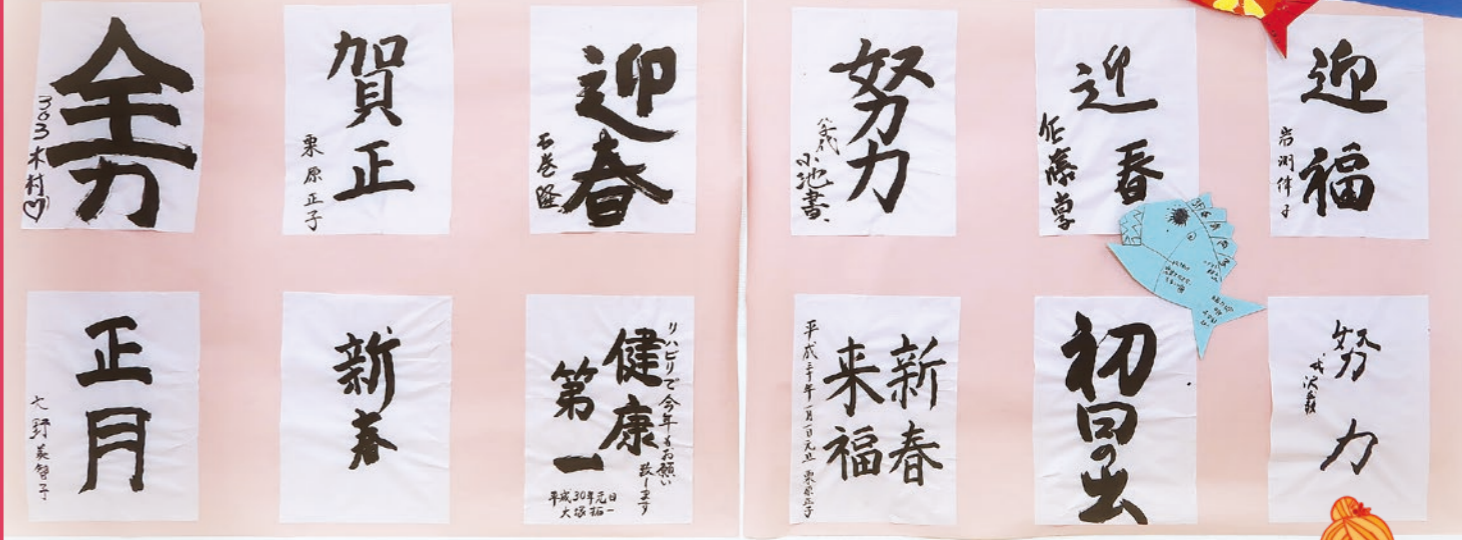 全力
303 木村♡
賀正
栗原正子
迎春
石巻隆
努力
小池書
迎春
佐藤
迎福
岩渕律子
正月
野美智子
新春
リハビリで今年もお願い
致します
健康
第一
平成30年元日
大塚拓一
新春
来福
平成三十年一月一日元旦 栗原正子
初日の出
努力